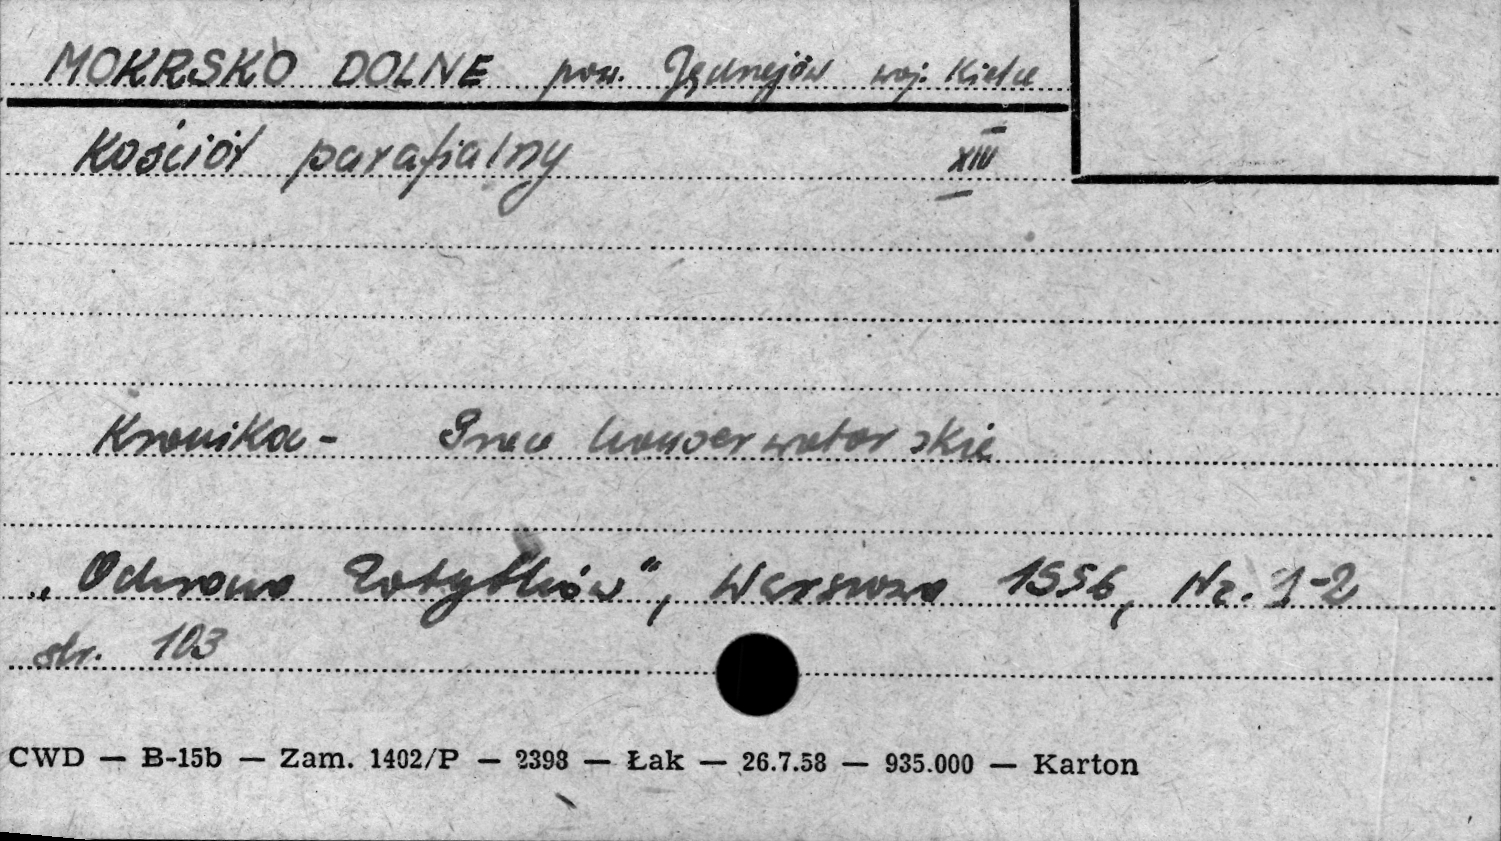 MOKRSKO DOLNE pow. Jędrzejów woj. Kielce
Kościół parafialny XIV
Kronika - Prace konserwatorskie
„Ochrona Zabytków", Warszawa 1956, Nr. 1-2
str. 103
CWD — B-15b — Zam. 1402/P — 2398 — Łak — 26.7.58 — 935.000 — Karton